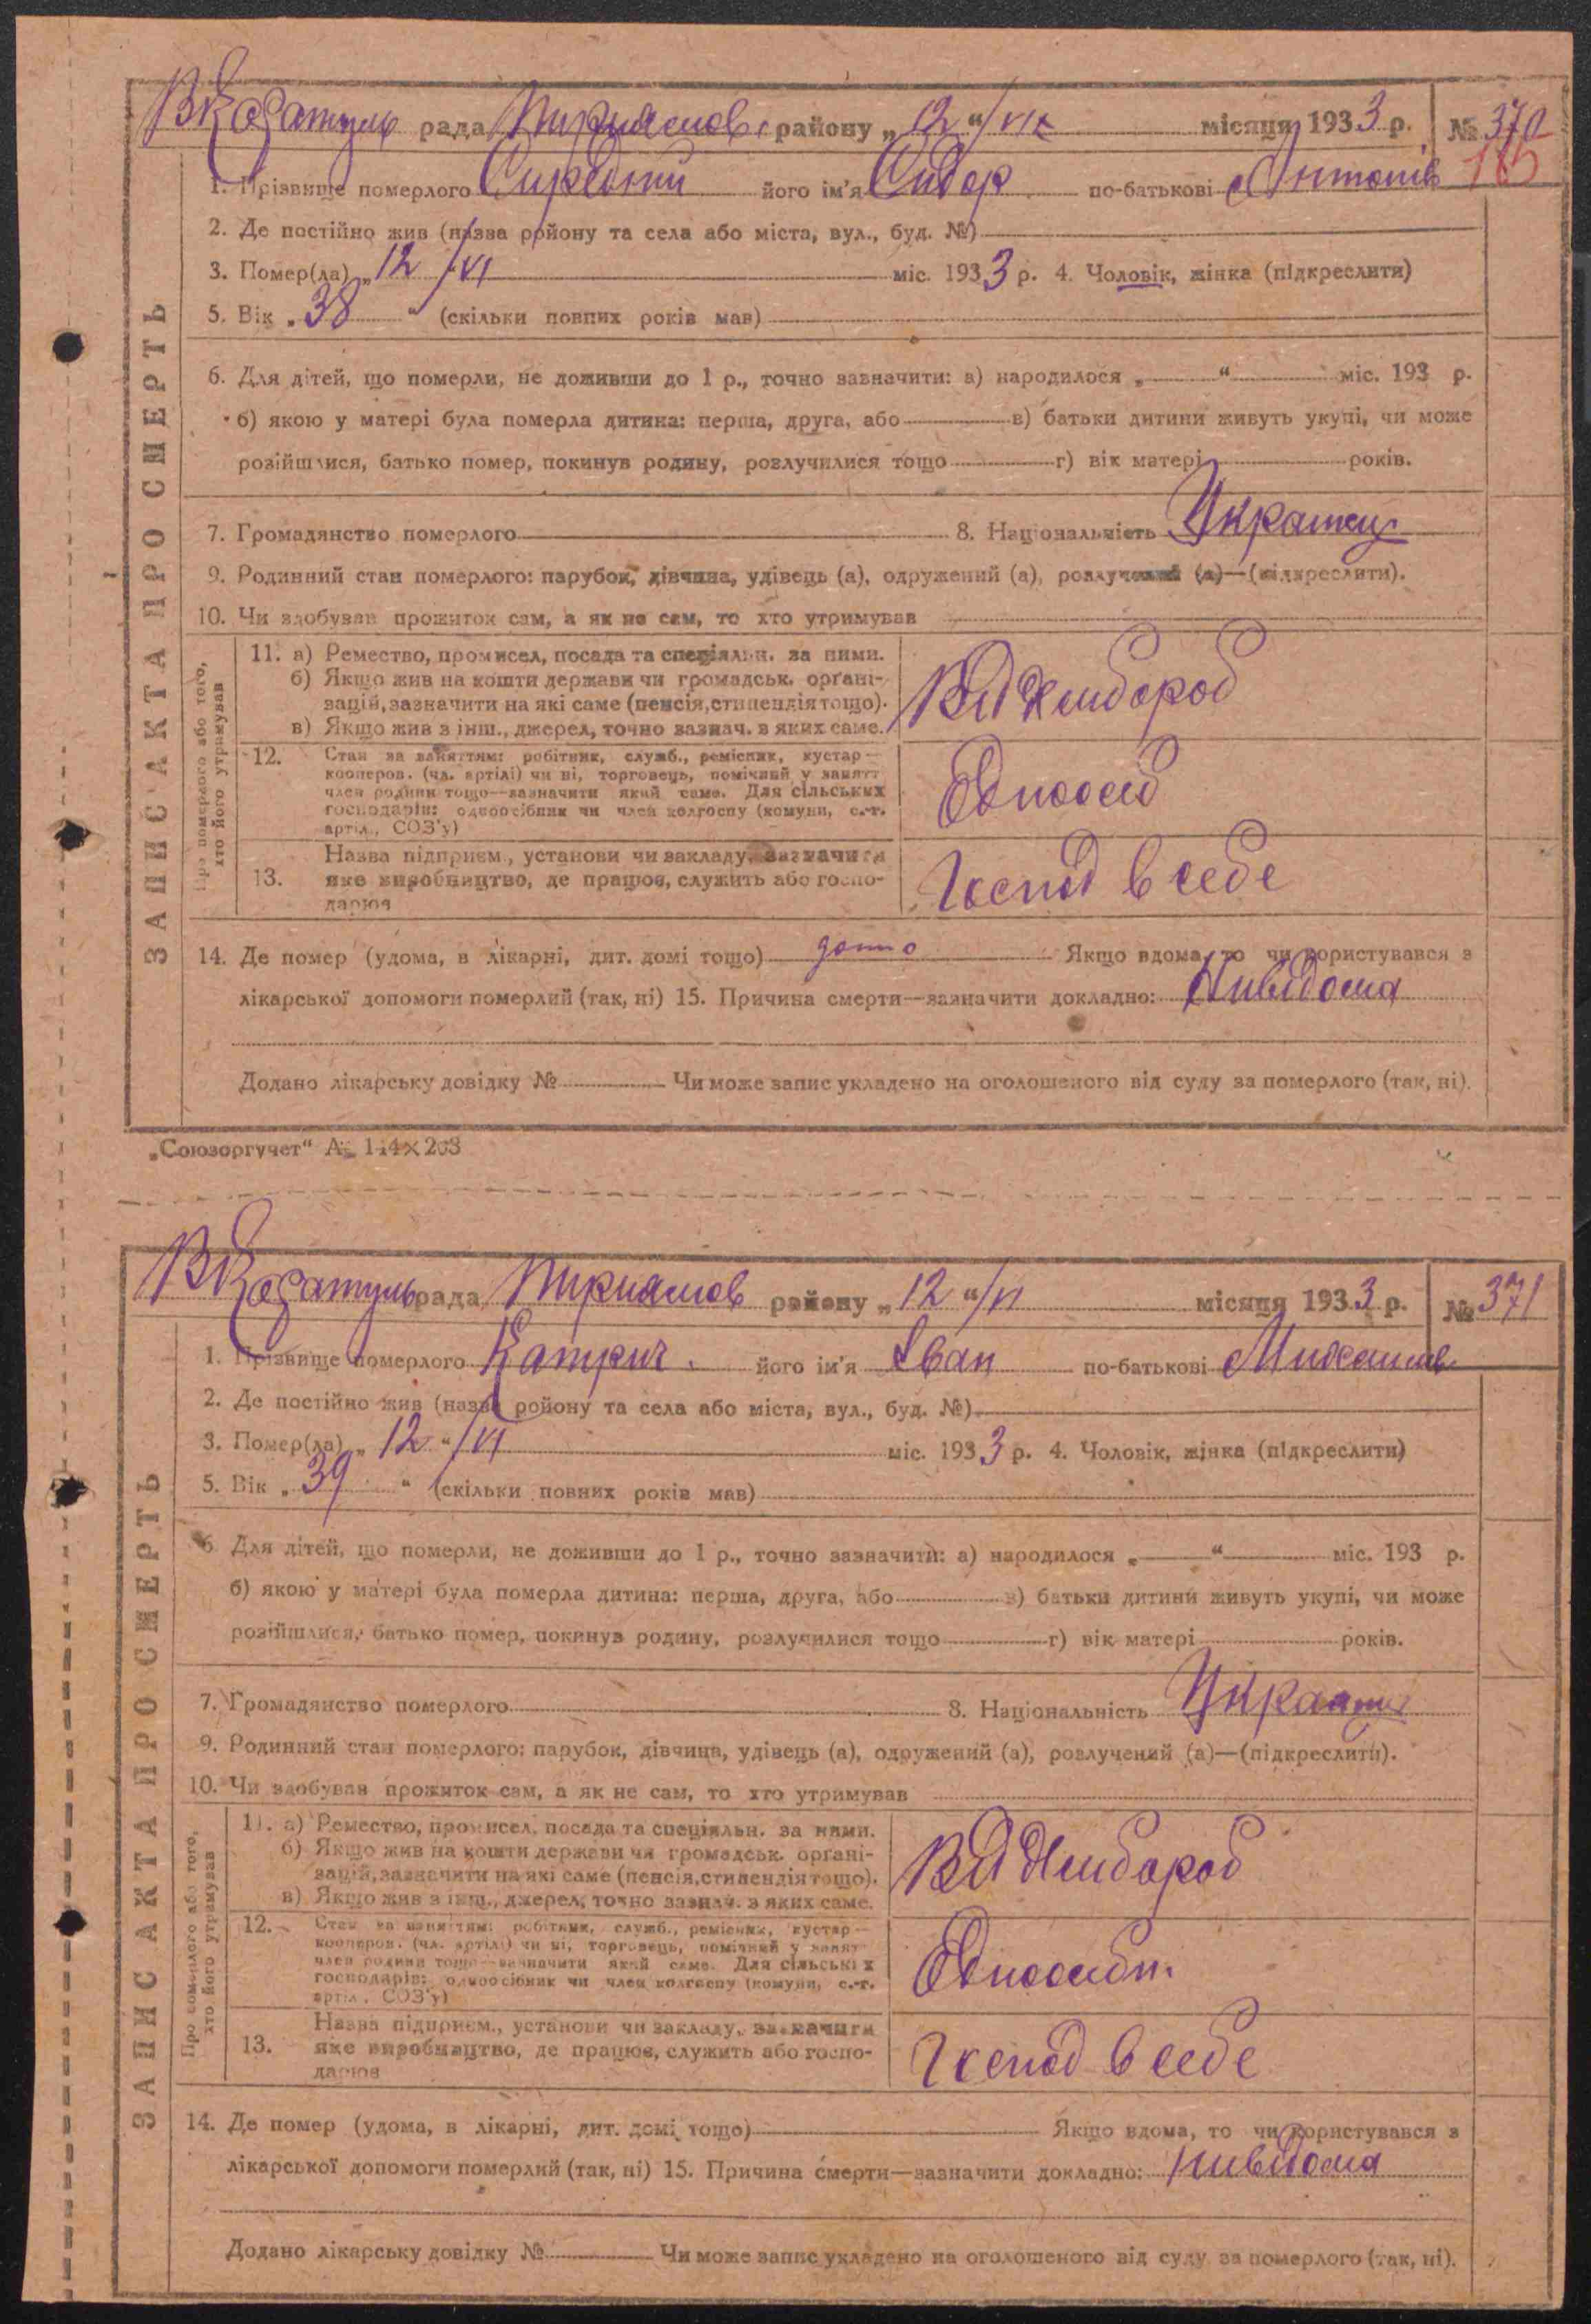 рада Пирятинов. району „12“/VI місяця 1933 р. № 370
185
1. Прізвище померлого його ім'я Сидор по-батькові Антонів
2. Де постійно жив (назва ройону та села або міста, вул., буд. №)
3. Помер(ла) „12“/VI міс. 1933 р. 4. Чоловік, жінка (підкреслити)
5. Вік „38“ (скільки повних років мав)
6. Для дітей, що померли, не доживши до 1 р., точно зазначити: а) народилося „ “ міс. 193 р.
б) якою у матері була померла дитина: перша, друга, або в) батьки дитини живуть укупі, чи може
розійшлися, батько помер, покинув родину, розлучилися тощо г) вік матері років.
7. Громадянство померлого 8. Національність Украинец
9. Родинний стан померлого: парубок, дівчина, удівець (а), одружений (а), розлучений (а)—(підкреслити).
10. Чи здобував прожиток сам, а як не сам, то хто утримував
ЗАПИС АКТА ПРО СМЕРТЬ
Про померлого або того, хто його утримував
11. а) Ремество, промисел, посада та спеціяльн. за ними.
б) Якщо жив на кошти держави чи громадськ. органі-
зацій, зазначити на які саме (пенсія, стипендія тощо).
в) Якщо жив з інш., джерел, точно зазнач. в яких саме.
Від Хлибороб
12. Стан за заняттям: робітник, служб., ремісник, кустар—
кооперов. (чл. артілі) чи ні, торговець, помічний у занятт
член родини тощо—зазначити який саме. Для сільських
господарів: одноосібник чи член колгоспу (комуни, с.-г.
артіл., СОЗ'у)
Одноосіб
13. Назва підприєм., установи чи закладу, зазначити
яке виробництво, де працює, служить або госпо-
дарює
Господ в себе
14. Де помер (удома, в лікарні, дит. домі тощо) Якщо вдома, то чи користувався з
лікарської допомоги померлий (так, ні) 15. Причина смерти—зазначити докладно: Нивідома
Додано лікарську довідку № Чи може запис укладено на оголошеного від суду за померлого (так, ні).
„Союзоргучет“ А₅ 144×203
рада Пирятинов району „12“/VI місяця 1933 р. № 371
1. Прізвище померлого Катрич. його ім'я Іван по-батькові Михайлів
2. Де постійно жив (назва ройону та села або міста, вул., буд. №)
3. Помер(ла) „12“/VI міс. 1933 р. 4. Чоловік, жінка (підкреслити)
5. Вік „39“ (скільки повних років мав)
6. Для дітей, що померли, не доживши до 1 р., точно зазначити: а) народилося „ “ міс. 193 р.
б) якою у матері була померла дитина: перша, друга, або в) батьки дитини живуть укупі, чи може
розійшлися, батько помер, покинув родину, розлучилися тощо г) вік матері років.
7. Громадянство померлого 8. Національність
9. Родинний стан померлого: парубок, дівчина, удівець (а), одружений (а), розлучений (а)—(підкреслити).
10. Чи здобував прожиток сам, а як не сам, то хто утримував
ЗАПИС АКТА ПРО СМЕРТЬ
Про померлого або того, хто його утримував
11. а) Ремество, промисел, посада та спеціяльн. за ними.
б) Якщо жив на кошти держави чи громадськ. органі-
зацій, зазначити на які саме (пенсія, стипендія тощо).
в) Якщо жив з інш., джерел, точно зазнач. з яких саме.
Від Хлибороб
12. Стан за заняттям: робітник, служб., ремісник, кустар—
кооперов. (чл. артілі) чи ні, торговець, помічний у занят
член родини тощо—зазначити який саме. Для сільських
господарів: одноосібник чи член колгоспу (комуни, с.-г.
артіл., СОЗ'у)
Одноосібн.
13. Назва підприєм., установи чи закладу, зазначити
яке виробництво, де працює, служить або госпо-
дарює
Господ в себе
14. Де помер (удома, в лікарні, дит. домі тощо) Якщо вдома, то чи користувався з
лікарської допомоги померлий (так, ні) 15. Причина смерти—зазначити докладно: нивідома
Додано лікарську довідку № Чи може запис укладено на оголошеного від суду за померлого (так, ні).